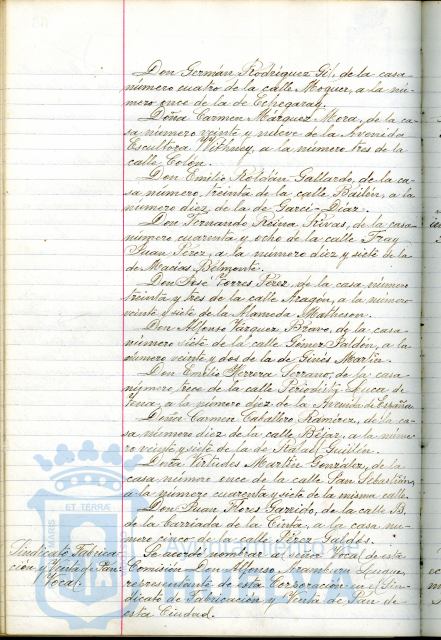 Don Germán Rodríguez Gil, de la casa
número cuatro de la calle Moguer, a la nú-
mero once de la de Echegaray.
Doña Carmen Márquez Mora, de la ca-
sa número veinte y nueve de la Avenida
Escultora Withney, a la número tres de la
calle Colón.
Don Emilio Roldán Gallardo, de la ca-
sa número treinta de la calle Bailén, a la
número diez de la de Garci-Díaz.
Don Fernando Reina Rivas, de la casa
número cuarenta y ocho de la calle Fray
Juan Pérez, a la número diez y siete de la
de Macías Belmonte.
Don José Torres Pérez, de la casa número
treinta y tres de la calle Aragón, a la número
veinte y siete de la Alameda Matheson.
Don Alfonso Vázquez Bravo, de la casa
número siete de la calle Gómez Jaldón, a la
número veinte y dos de la de Ginés Martín.
Don Emilio Herrera Serrano, de la casa
número trece de la calle Periodista Luca de
Tena, a la número diez de la Avenida de España.
Doña Carmen Caballero Ramírez, de la ca-
sa número diez de la calle Béjar, a la núme-
ro veinte y siete de la de Rafael Guillén.
Doña Virtudes Martín González, de la
casa número once de la calle San Sebastián,
a la número cuarenta y siete de la misma calle.
Don Juan Flores Garrido, de la calle B.
de la Barriada de la Cinta, a la casa nú-
mero cinco de la calle Pérez Galdós.
Sindicato Fabrica-
ción y Venta de Pan
Vocal.
Se acordó nombrar al señor Vocal de esta
Comisión Don Alfonso Aramburu
representante de esta Corporación en el Sin-
dicato de Fabricación y Venta de Pan de
esta Ciudad.
ET TERRÆ
MARIS